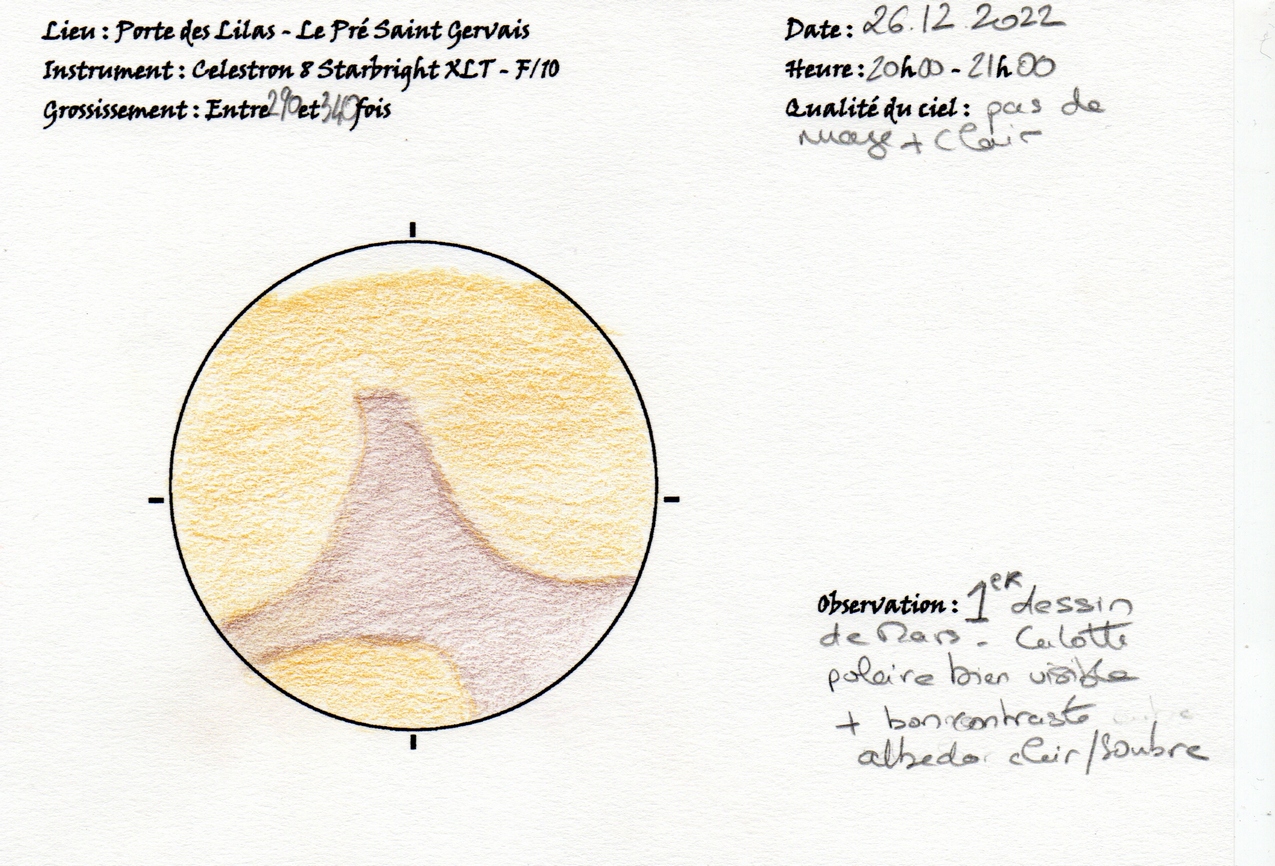 Lieu : Porte des Lilas - Le Pré Saint Gervais
Instrument : Celestron 8 Starbright XLT - F/10
Grossissement : Entre 290 et 340 fois
Date : 26.12.2022
Heure : 20h00 - 21h00
Qualité du ciel : pas de
nuage + clair
Observation : 1er dessin
de Mars - Calotte
polaire bien visible
+ bon contraste
albedo clair/soubre